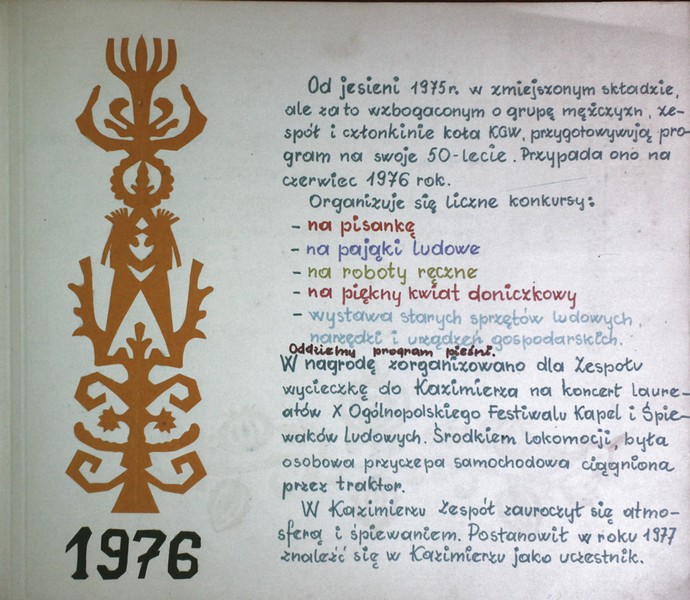 Od jesieni 1975r. w zmiejszonym składzie,
ale za to wzbogaconym o grupę mężczyzn, ze-
spół i członkinie koła KGW, przygotowywują pro-
gram na swoje 50-lecie. Przypada ono na
czerwiec 1976 rok.
Organizuje się liczne konkursy:
- na pisankę
- na pająki ludowe
- na roboty ręczne
- na piękny kwiat doniczkowy
- wystawa starych sprzętów ludowych,
narzędzi i urządzeń gospodarskich.
Oddzielny program pieśni.
W nagrodę zorganizowano dla Zespołu
wycieczkę do Kazimierza na koncert laure-
atów X Ogólnopolskiego Festiwalu Kapel i Śpie-
waków Ludowych. Środkiem lokomocji, była
osobowa przyczepa samochodowa ciągniona
przez traktor.
W Kazimierzu Zespół zauroczył się atmo-
sferą i śpiewaniem. Postanowił w roku 1977
znaleźć się w Kazimierzu jako uczestnik.
1976